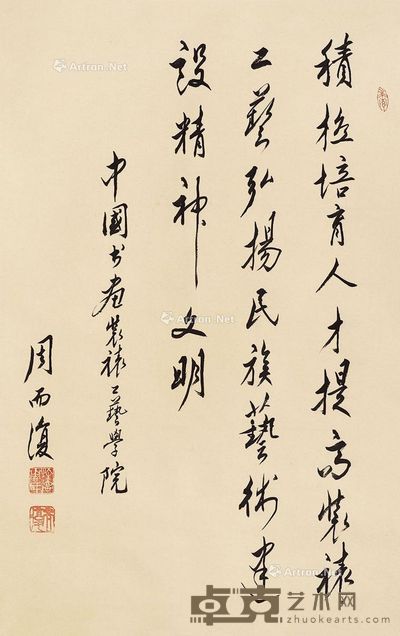 積极培育人才提高装裱
工藝弘揚民族藝術建
設精神文明
中國书画装裱工藝學院
周而復
Artron.Net
Artron.Net
Artron.Net
Artron.Net
卓克艺术网
zhuokearts.com